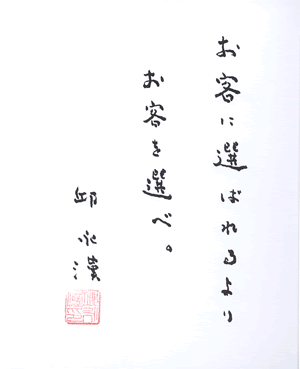 お客に選ばれるより
お客を選べ。
邱永漢